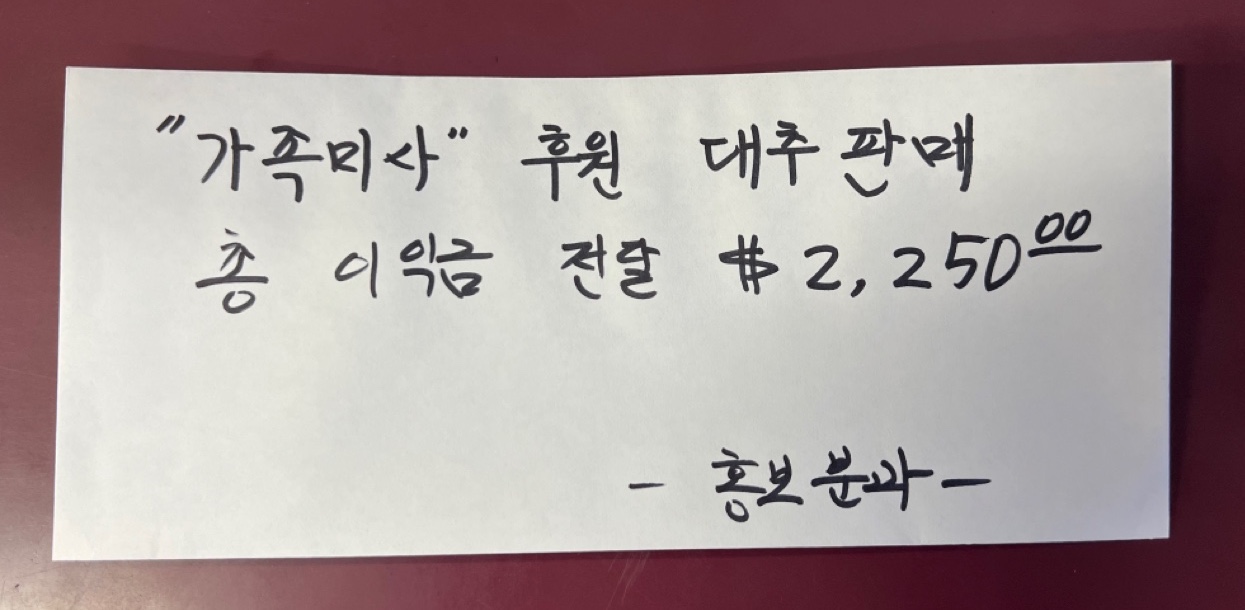 "가족미사" 후원 대추 판매
총 이익금 전달 $2,250.00
- 홍보분과 -